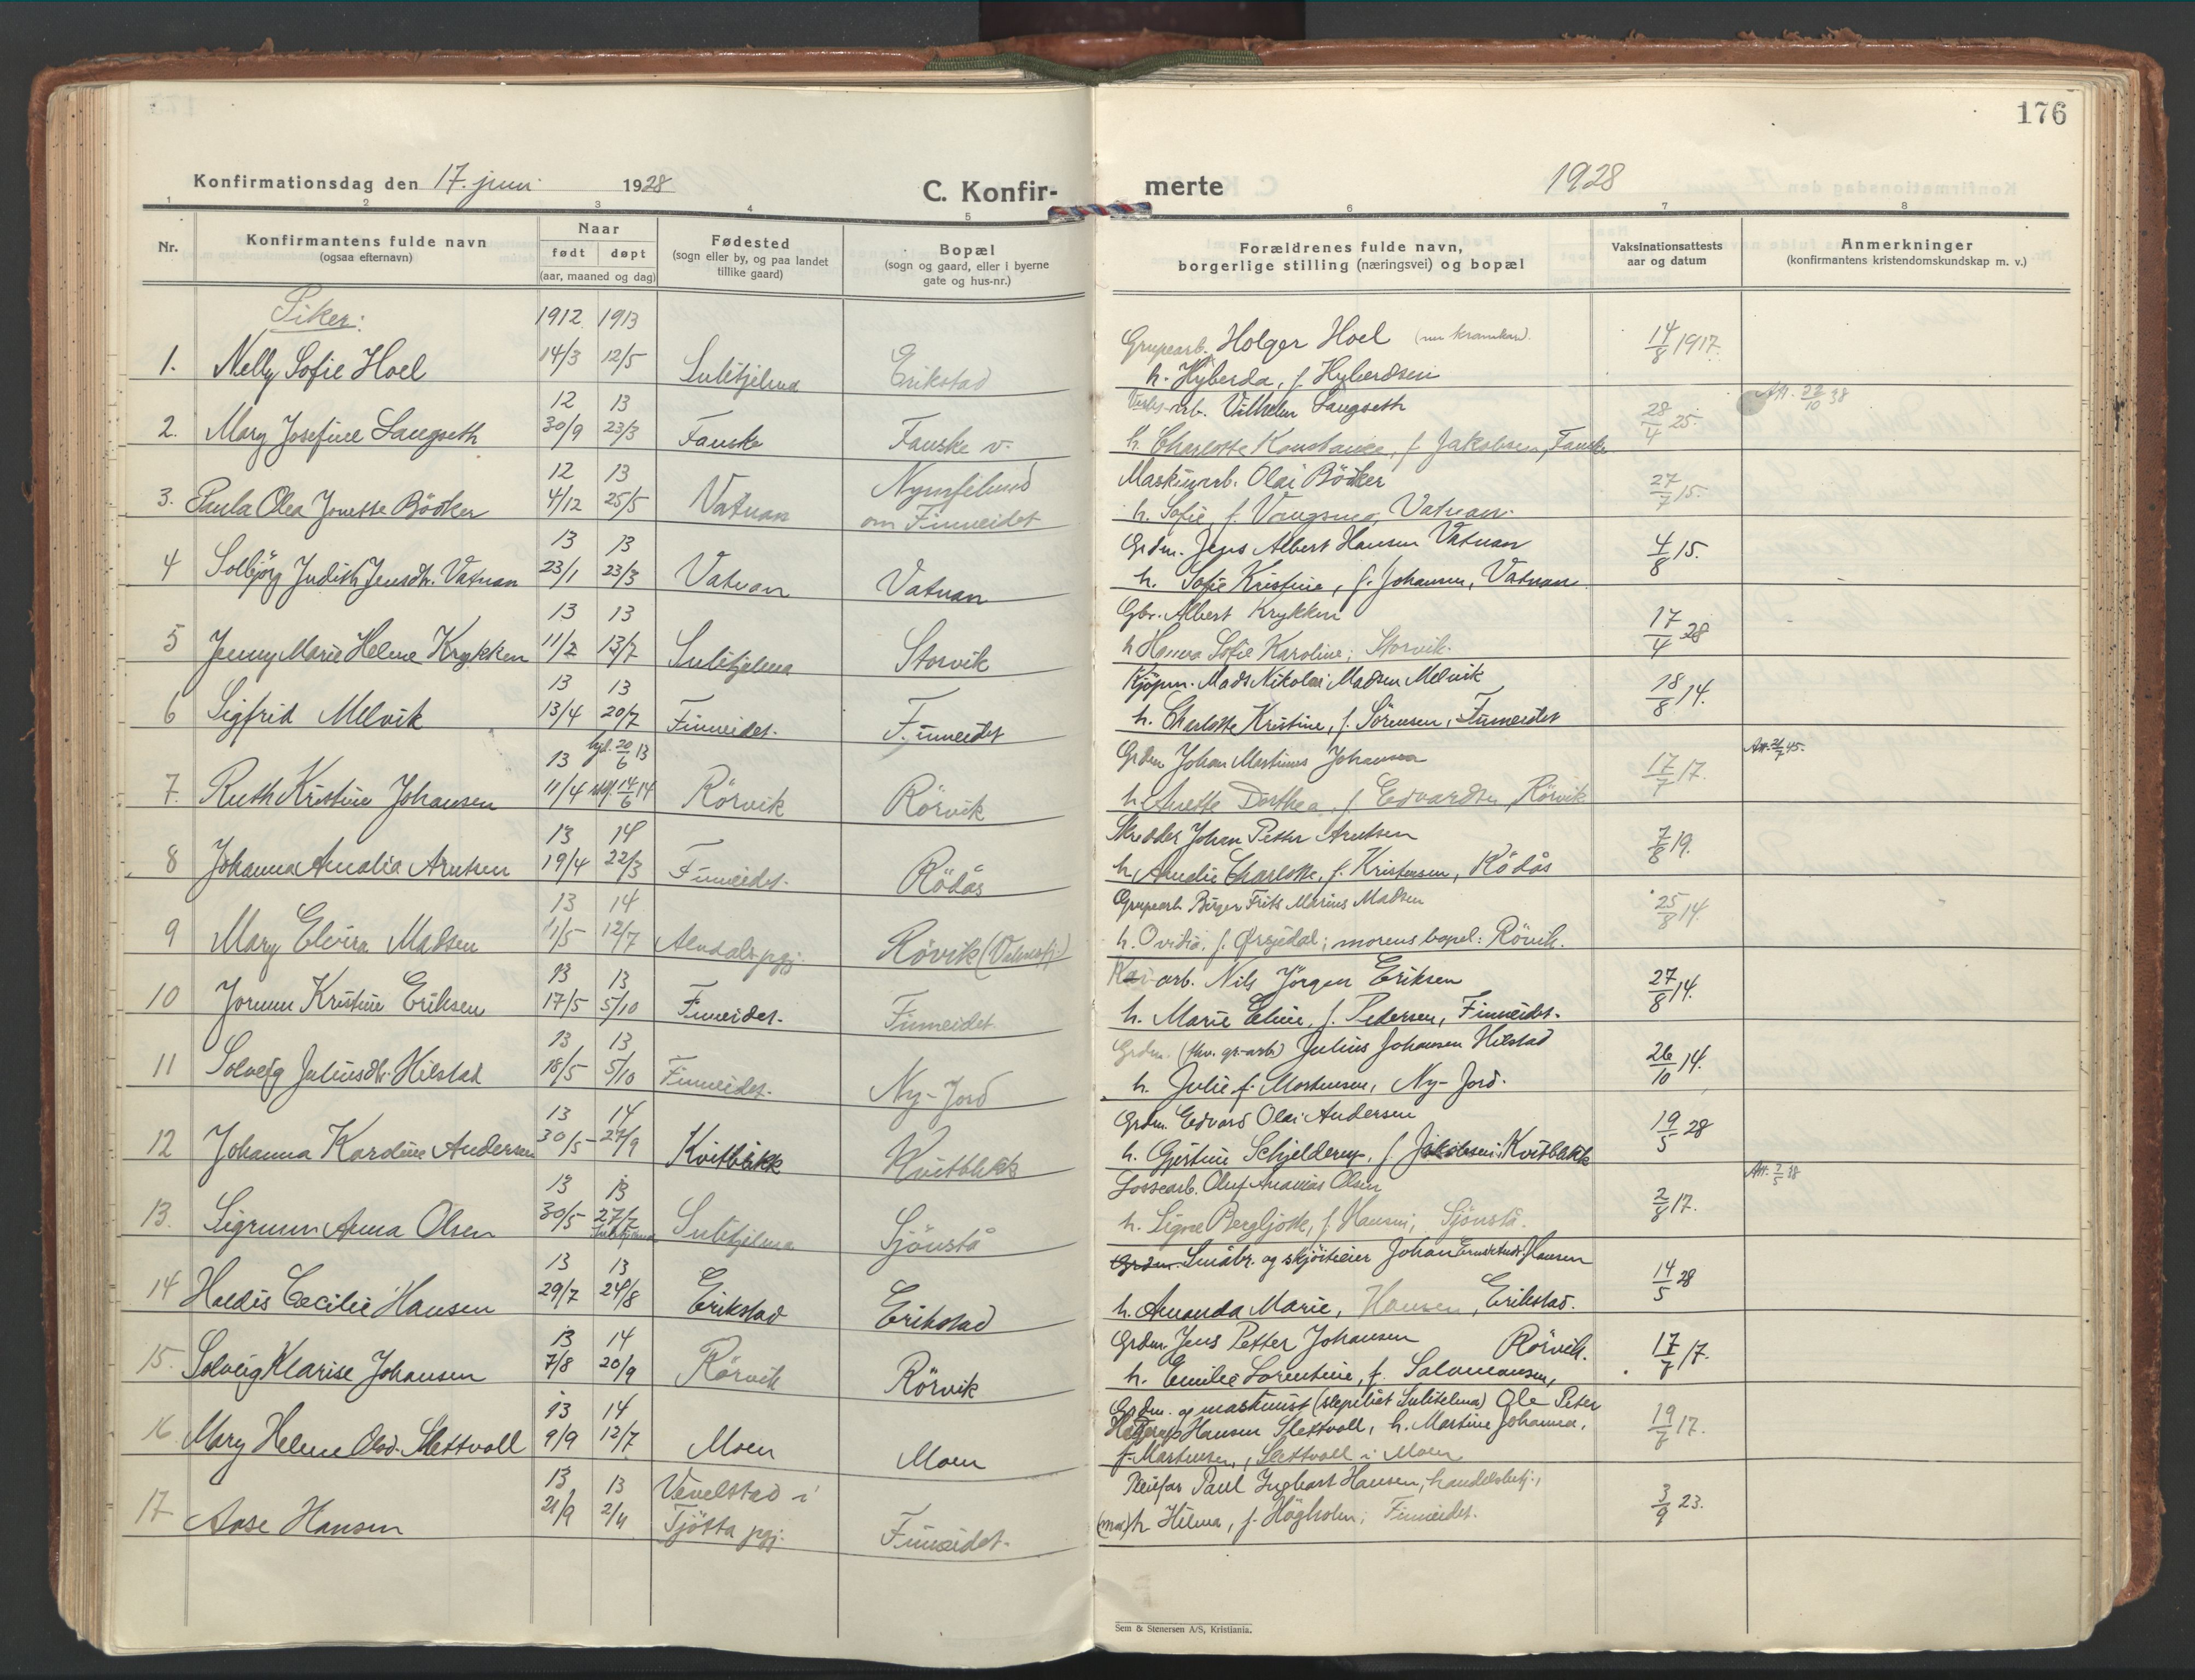 176
Konfirmationsdag den 17. juni 1928
C. Konfir-
merte
1928
1 2 3 4 5 6 7 8
Nr.
Konfirmantens fulde navn
(ogsaa efternavn)
Naar
født døpt
(aar, maaned og dag)
Fødested
(sogn eller by, og paa landet
tillike gaard)
Bopæl
(sogn og gaard, eller i byerne
gate og hus-nr.)
Forældrenes fulde navn,
borgerlige stilling (næringsvei) og bopæl
Vaksinationsattests
aar og datum
Anmerkninger
(konfirmantens kristendomskundskap m. v.)
Piker:
1912 1913
1. Nelly Sofie Hoel 14/3 12/5 Sulitjelma Erikstad
Grupearb. Holger Hoel
h. Hyberda, f. Hybertsen
14/8 1917.
12 13
2. Mary Josefine Langseth 30/9 23/3 Fauske Fauske v.
arb. Vilhelm Langseth
h. Charlotte Konstance, f. Jakobsen, Fauske
28/4 25.
Att. 22/10 38
12 13
3. Paula Olea Jonette Bödker 4/12 25/5 Vatnan Nymfelund
om Finneidet
Maskinarb. Olai Bödker
h. Sofie, f. Vangsmo, Vatnan
27/7 15.
13 13
4 Solbjörg Judith Jensdtr. Vatnan 23/1 23/3 Vatnan Vatnan
Grdm. Jens Albert Hansen Vatnan
h. Sofie Kristine, f. Johansen, Vatnan
4/8 15.
13 13
5 Jenny Marie Helene Krykken 11/2 13/7 Sulitjelma Storvik
Gbr. Albert Krykken
h Hanna Sofie Karoline; Storvik.
17/4 28
13 13
6 Sigfrid Melvik 13/4 20/7 Finneidet. Finneidet
Kjöpm. Mads Nikolai Madsen Melvik
h. Charlotte Kristine, f. Sörensen, Finneidet
18/8 14.
13 hjd. 20/6 13
7. Ruth Kristine Johansen 11/4 14/6 14 Rörvik Rörvik
Grdm Johan Martinus Johansen
h Anette Dorthea, f Edvardsen, Rörvik
17/7 17.
Att. 21/7 45.
13 14
8 Johanna Amalia Arntsen 19/4 22/3 Finneidet. Rödås
Skredder Johan Petter Arntsen
h. Amalie Charlotte, f. Kristensen, Rödås
7/8 19.
13 14
9 Mary Elvira Madsen 11/5 12/7 Rövik
Grupearb Birger Frits Marius Madsen
h. Ovidia, f. Ørsjedal; morens bopel: Rövik.
25/8 14.
13 13
10 Jorunn Kristine Eriksen 17/5 5/10 Finneidet. Finneidet
Kaiarb. Nils Jörgen Eriksen
h. Marie Eline, f. Pedersen, Finneidet.
27/8 14.
13 13
11 Solveig Juliusdtr. Hilstad 18/5 5/10 Finneidet. Ny-Jord
Grdm. (fhv. gr-arb) Julius Johansen Hilstad
h. Julie f. Mortensen, Ny-Jord.
26/10 14.
13 14
12 Johanna Karoline Andersen 30/5 27/9 Kvitblikk Kvitblikk
Grdm. Edvard Olai Andersen
h. Gjertine Schjelderup, f. Jakobsen, Kvitblikk
19/5 28
13 13
13. Sigrunn Anna Olsen 30/5 27/7 Sulitjelma Sulitjelma Sjönstå
Lossearb. Oluf Ananias Olsen
h. Signe Bergljott, f. Hansen; Sjönstå.
2/8 17.
Att. 2/5 38
13 13
14 Haldis Cecilie Hansen 29/7 24/8 Erikstad Erikstad
Grdm. Småbr. og skjöiteeier Johan Hansen
h. Amanda Marie, Hansen, Erikstad.
14/5 28
13 14
15. Solveig Klarise Johansen 7/8 20/9 Rörvik Rörvik
Grdm Jens Petter Johansen Rörvik.
h. Emilie Lorentine, f. Salomonsen,
17/7 17.
13 14
16 Mary Helene Olsd. Slettvoll 9/9 12/7 Moen Moen
Grdm. og maskinist (slepebåt Sulitelma) Ole Peter
Hagerup Hansen Slettvoll, h. Martine Johanna,
f. Martinsen, Slettvoll i Moen
19/6 17.
13 13
17 Aase Hansen 21/9 2/11 Vevelstad i
Tjötta pgj. Finneidet.
Pleiefar Paul Ingbart Hansen, handelsbetj.,
(mor) h Hilma, f. Högholm; Finneidet.
3/9 23.
Sem & Stenersen A/S, Kristiania.